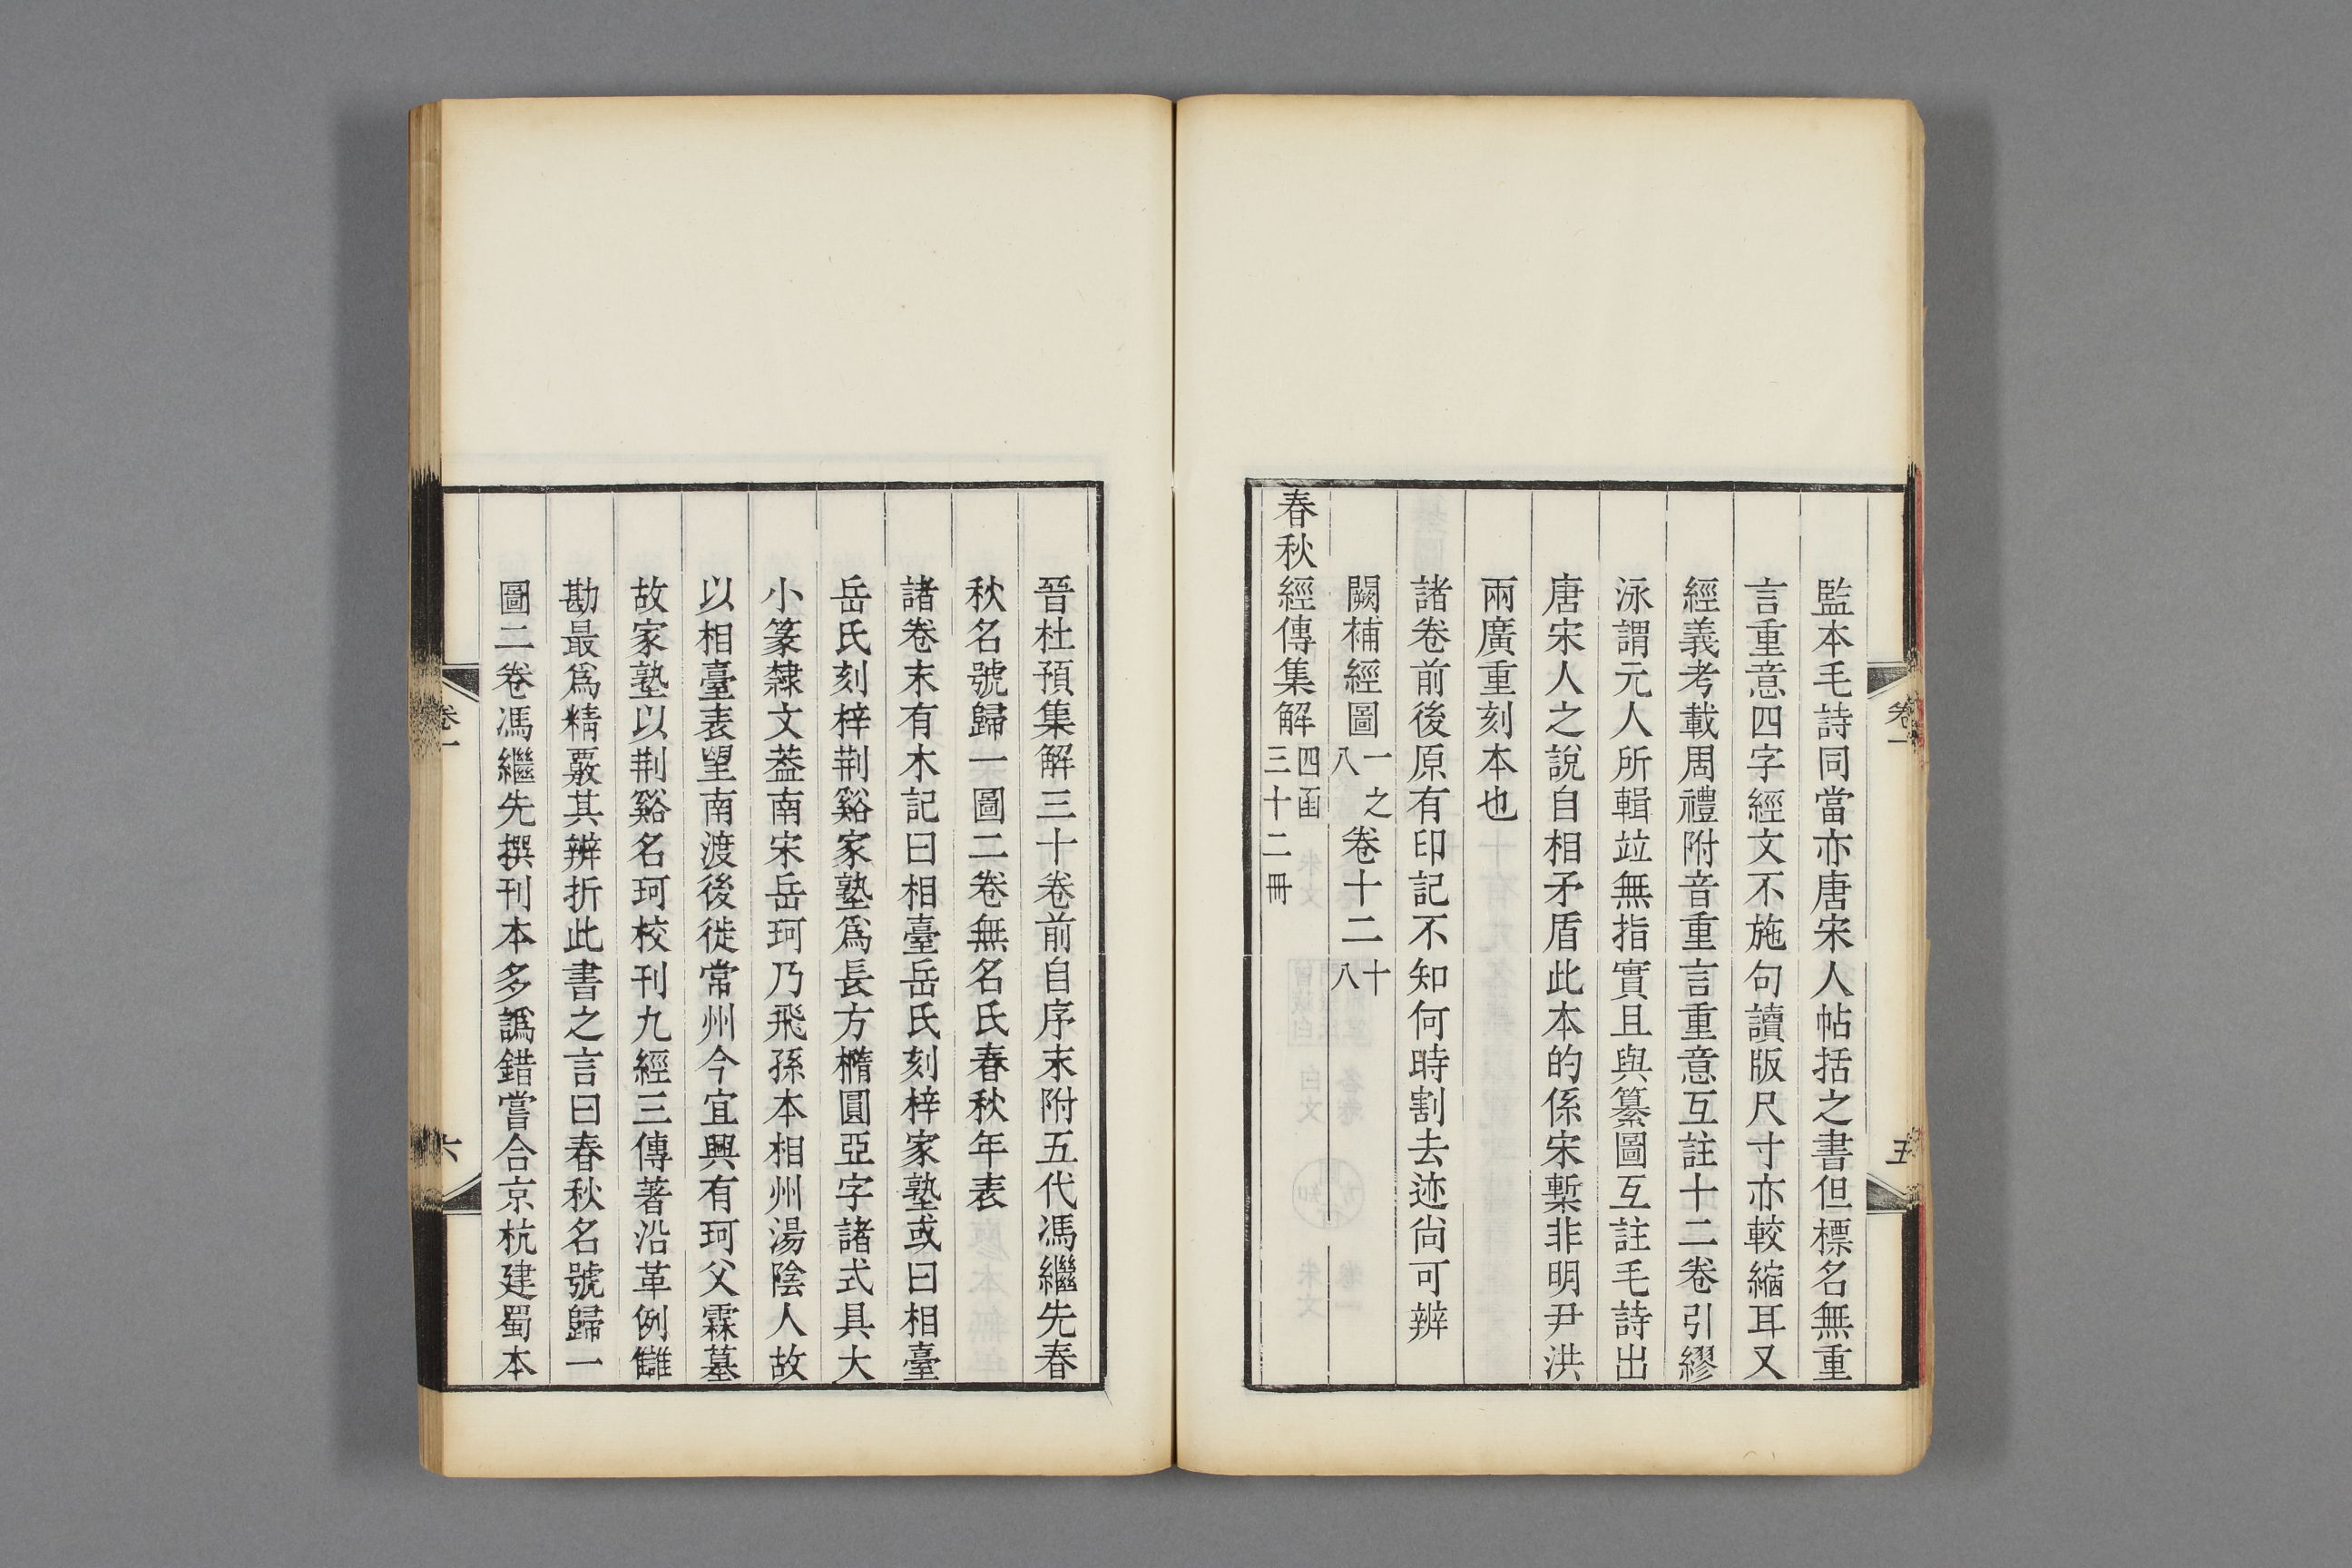 監本毛詩同當亦唐宋人帖括之書但標名無重
言重意四字經文不施句讀版尺寸亦較縮耳又
經義考載周禮附音重言重意互註十二卷引繆
泳謂元人所輯竝無指實且與纂圖互註毛詩出
唐宋人之說自相矛盾此本的係宋槧非明尹洪
兩廣重刻本也
諸卷前後原有印記不知何時割去迹尙可辨
闕補經圖一之八卷十二十八
春秋經傳集解四函三十二冊
卷一
五
晉杜預集解三十卷前自序末附五代馮繼先春
秋名號歸一圖二卷無名氏春秋年表
諸卷末有木記曰相臺岳氏刻梓家塾或曰相臺
岳氏刻梓荆谿家塾爲長方橢圓亞字諸式具大
小篆隸文葢南宋岳珂乃飛孫本相州湯陰人故
以相臺表望南渡後徙常州今宜興有珂父霖墓
故家塾以荆谿名珂校刊九經三傳著沿革例讎
勘最爲精覈其辨折此書之言曰春秋名號歸一
圖二卷馮繼先撰刊本多譌錯嘗合京杭建蜀本
卷一
六